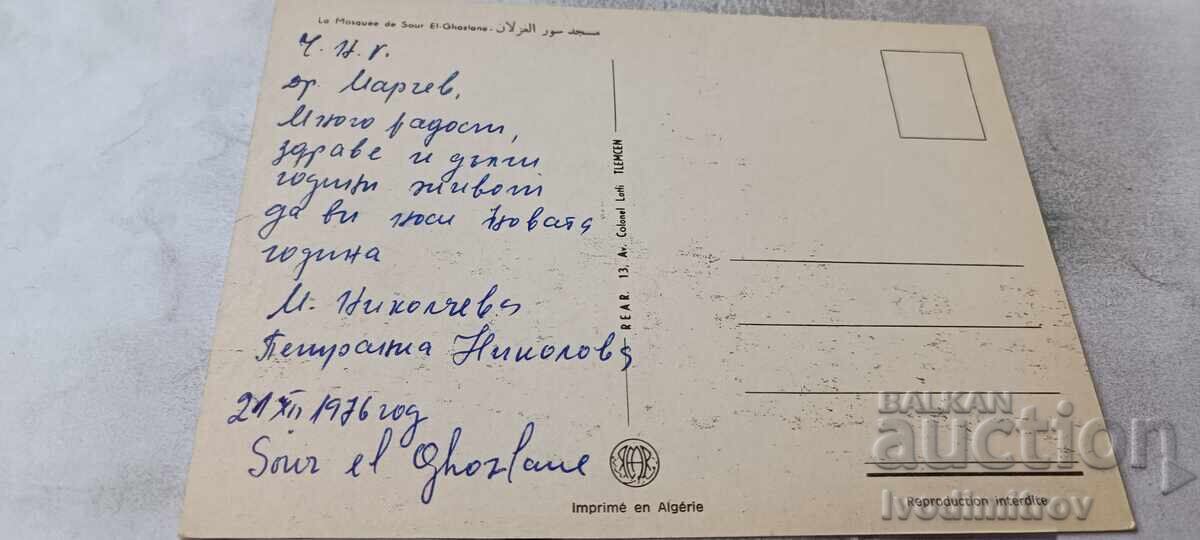 La Mosquée de Sour El-Ghozlane - مسجد سور الغزلان
Ч. Н. Г.
др. Марчев,
Много радост,
здраве и дълги
години живот
да ви носи Новата
година
М. Николчева
Петранка Николова
21 XII 1976 год
Sour el Ghozlane
REAR. 13, Av. Colonel Lotfi TLEMCEN
REAR
Imprimé en Algérie
Reproduction interdite
BALKAN
auction
Ivodimitrov